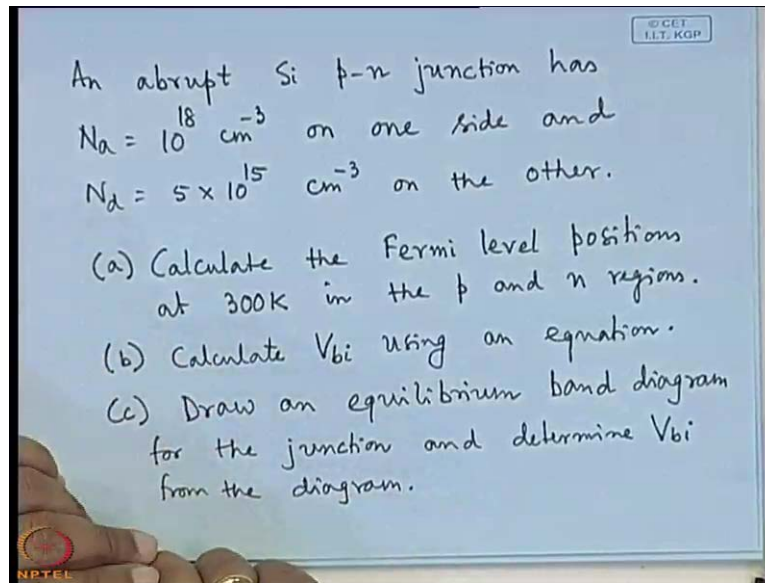 © CET
I.I.T. KGP
An abrupt Si p-n junction has
Na = 10^18 cm^-3 on one side and
Nd = 5 x 10^15 cm^-3 on the other.
(a) Calculate the Fermi level positions
at 300K in the p and n regions.
(b) Calculate Vbi using an equation.
(c) Draw an equilibrium band diagram
for the junction and determine Vbi
from the diagram.
NPTEL